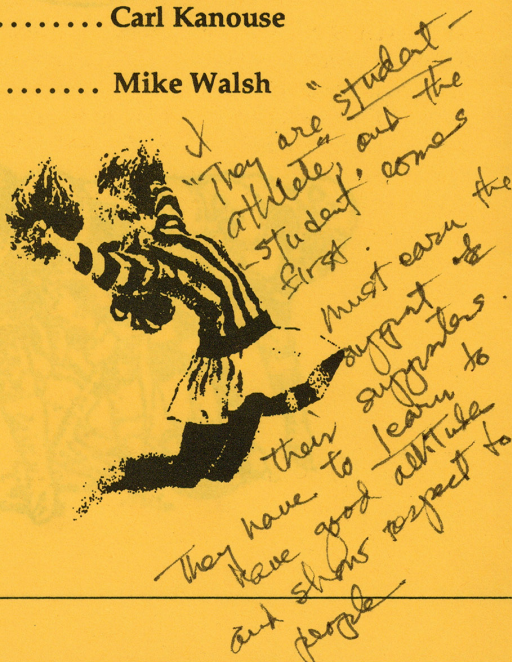 ........Carl Kanouse
....... Mike Walsh
X
"They are "student-
athlete", and the
student, comes
first.
Must earn the
support of
their supporters.
They have to learn to
have good attitude
and show respect to
people